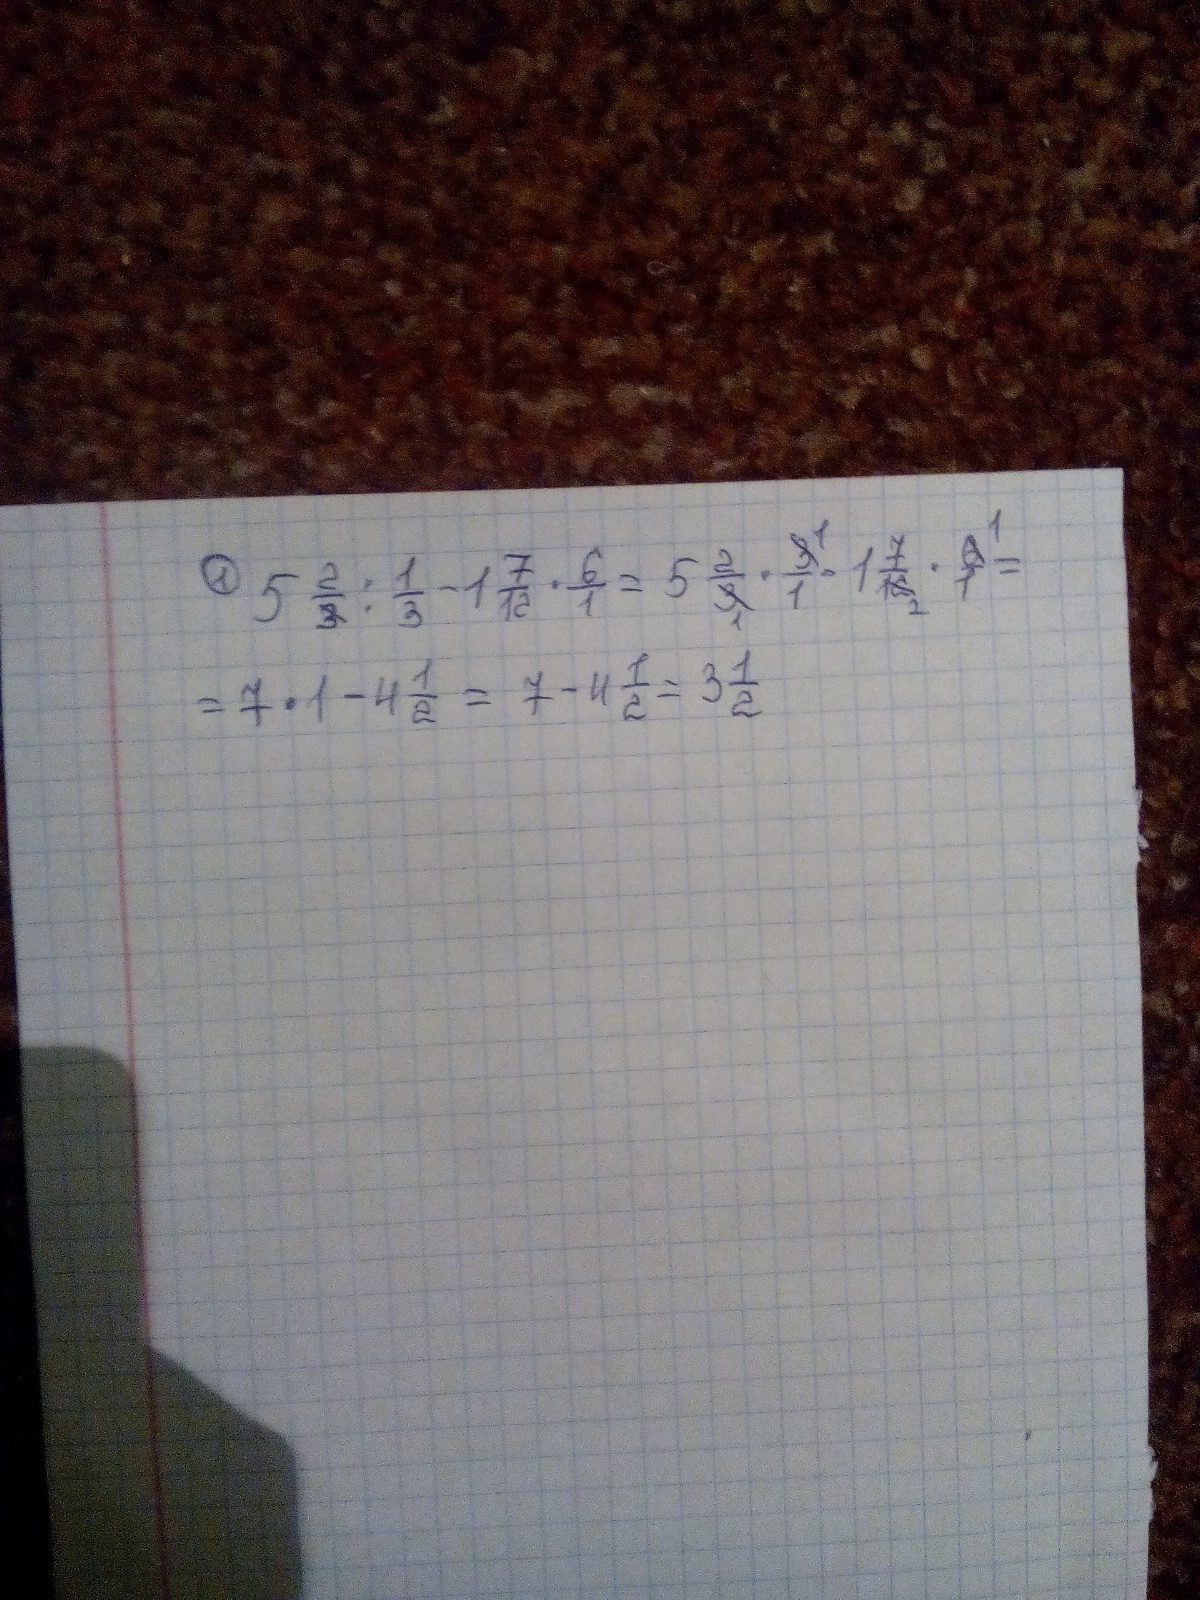 ① 5 2/3 : 1/3 - 1 7/12 · 6/1 = 5 2/3 1 · 3/1 1 · 1 7/12 2 · 6/1 1 =
= 7 · 1 - 4 1/2 = 7 - 4 1/2 = 3 1/2